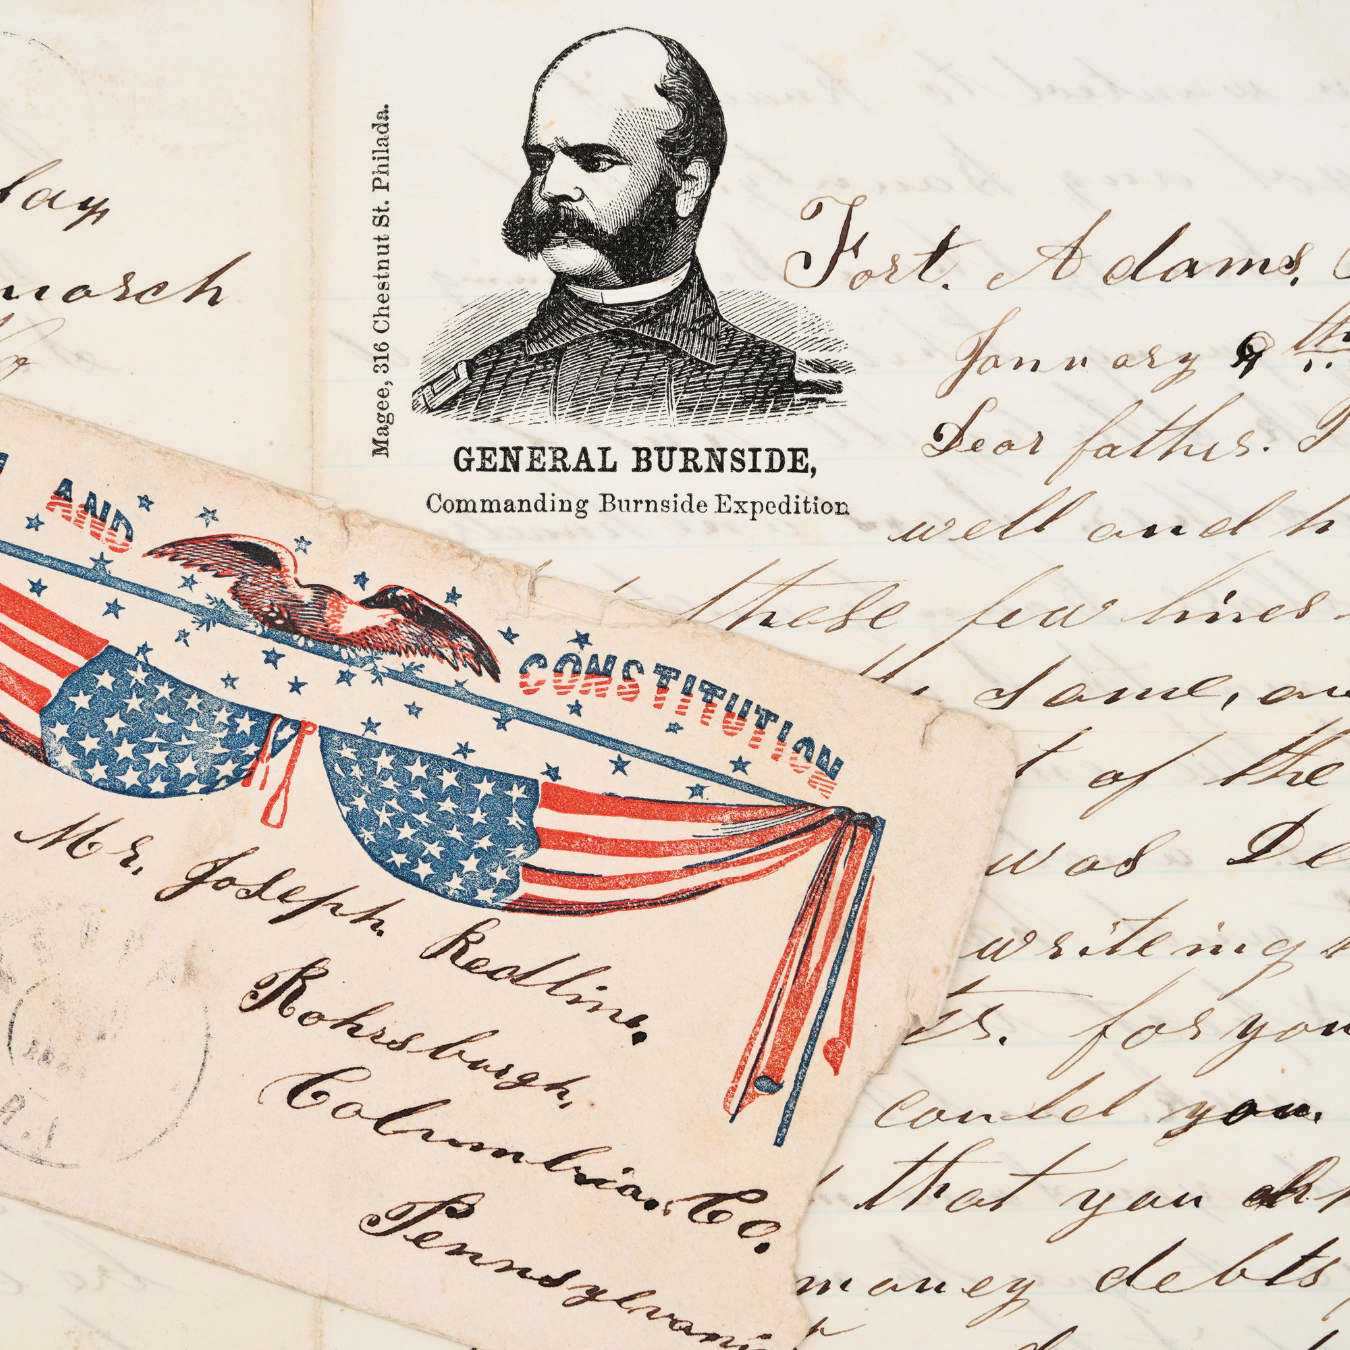 day
march
Magee, 316 Chestnut St. Philada.
GENERAL BURNSIDE,
Commanding Burnside Expedition
Fort. Adams.
January 9th
Dear father. I
well and h
those few lines
same, an
t of the
was De
writeing
for you
could you.
that you
money debts,
AND
CONSTITUTION
Mr. Joseph. Redline.
Rohrsburgh,
Columbia. Co.
Pennsylvani